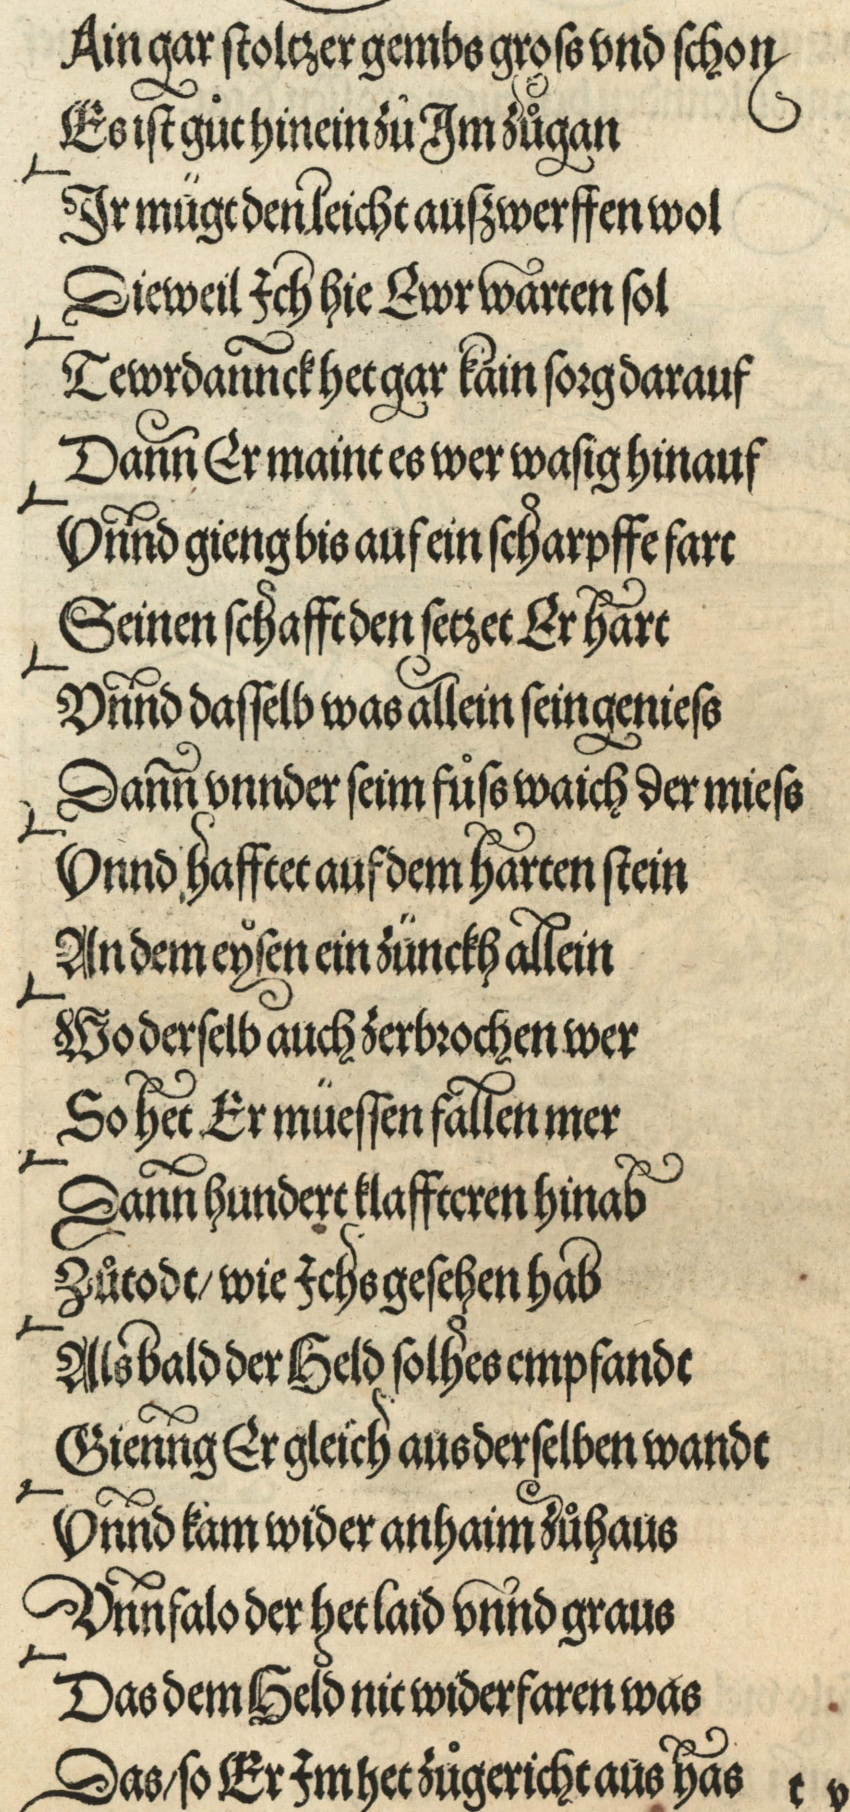 Ain gar stoltzer gembs gross vnd schon
Es ist gůt hinein zů Im zůgan
Ir mügt den leicht auszwerffen wol
Dieweil Ich hie Ewr warten sol
Tewrdannck het gar kain sorg darauf
Dann Er maint es wer wasig hinauf
Vnnd gieng bis auf ein scharpffe fart
Seinen schafft den setzet Er hart
Vnnd dasselb was allein sein geniess
Dann vnnder seim fůss waich der miess
Vnnd hafftet auf dem harten stein
An dem eysen ein zünckh allein
Wo derselb auch zerbrochen wer
So het Er müessen fallen mer
Dann hundert klaffteren hinab
Zůtodt/ wie Ichs gesehen hab
Alsbald der Held solhes empfandt
Gienng Er gleich aus derselben wandt
Vnnd kam wider anhaim zůhaus
Vnnfalo der het laid vnnd graus
Das dem Held nit widerfaren was
Das/so Er Im het zůgericht aus has
t v